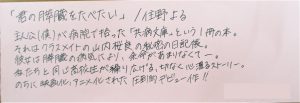 「君の膵臓をたべたい」/住野よる
主人公(僕)が病院で拾った「共病文庫」という1冊の本。
それはクラスメイトの山内桜良の秘密の日記帳。
彼女は膵臓の病気により、余命があまりなくて…。
私たちと同じ高校生が繰り広げる、切なく心温まるストーリー。
のちに映画化、アニメ化された 圧倒的デビュー作!!